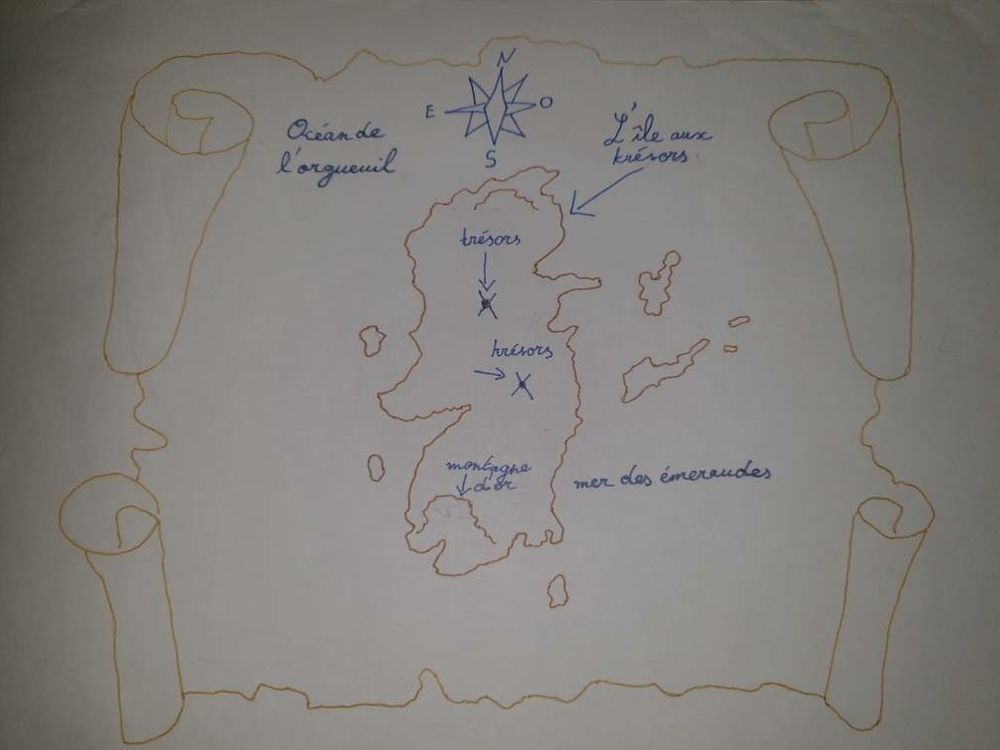 N
E
O
S
Océan de
l'orgueuil
L'île aux
trésors
trésors
trésors
montagne
d'or
mer des émeraudes